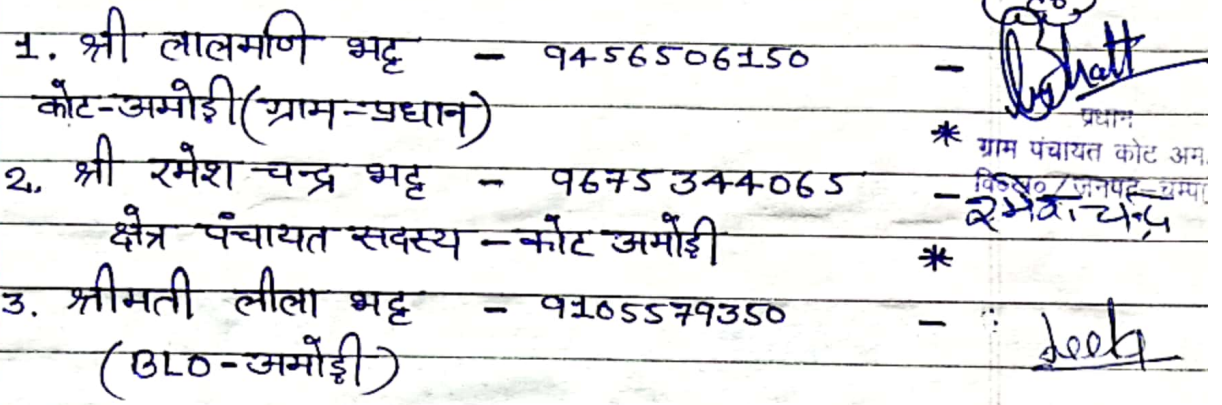 1. श्री लालमणि भट्ट - 9456506150 -
Bhatt
कोट-अमोड़ी (ग्राम-प्रधान)
प्रधान
* ग्राम पंचायत कोट अम
2. श्री रमेश चन्द्र भट्ट - 9675344065 -
वि०ख०/जनपद-चम्पा
रमेश चन्द्र
क्षेत्र पंचायत सदस्य - कोट अमोड़ी *
3. श्रीमती लीला भट्ट - 9105579350 -
Leela
(BLO-अमोड़ी)